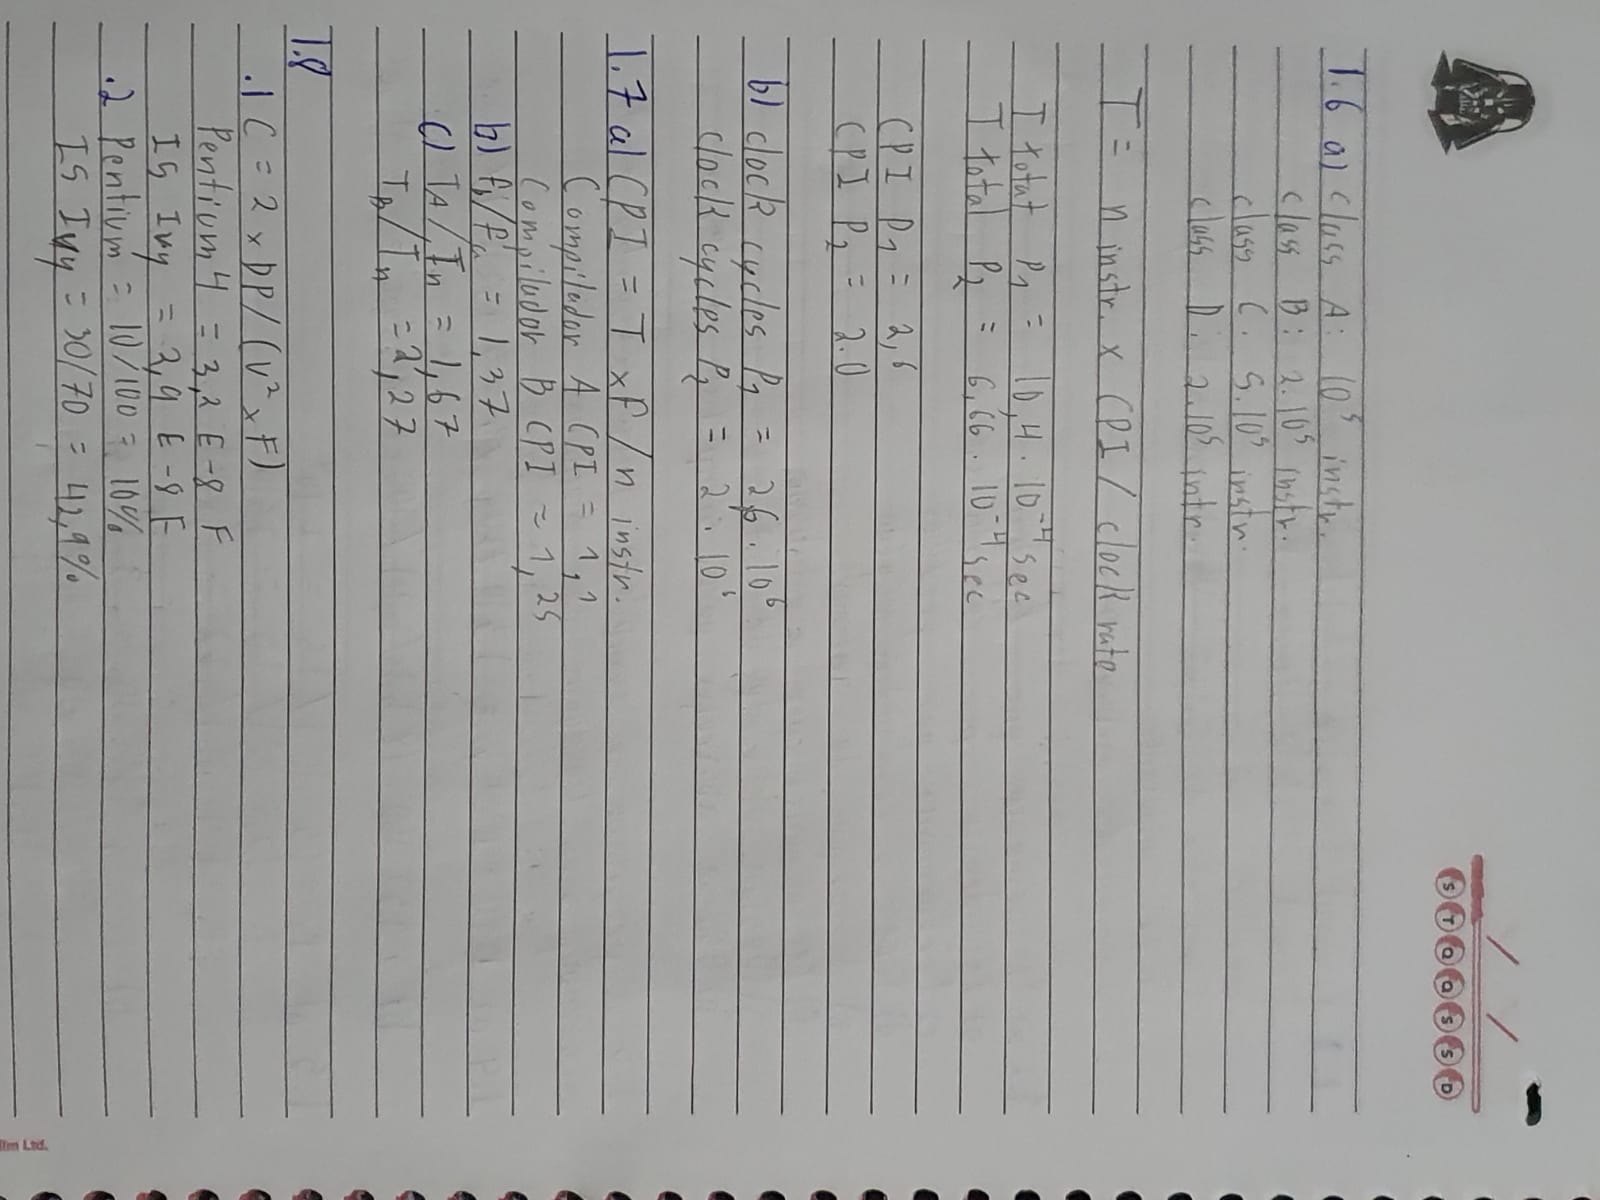 S T A A S S D
1.6 a) class A: 10⁵ instr.
class B: 2.10⁵ instr.
class C: 5.10⁵ instr.
class D: 2.10⁵ intr.
T = n instr. x CPI / clock rate
T total P1 = 10,4 . 10⁻⁴ sec
T total P2 = 6,66 . 10⁻⁴ sec
CPI P1 = 2,6
CPI P2 = 2.0
b) clock cycles P1 = 26 . 10⁶
clock cycles P2 = 2 . 10⁶
1.7 a) CPI = T x f / n instr.
Compilador A CPI = 1,1
Compilador B CPI = 1,25
b) fb/fa = 1,37
c) TA/Tn = 1,67
TB/Tn = 2,27
1.8
.1 C = 2 x DP/(V² x F)
Pentium 4 = 3,2 E-8 F
I5 Ivy = 2,9 E-8 F
.2 Pentium = 10/100 = 10%
I5 Ivy = 30/70 = 42,9%
Ltd.